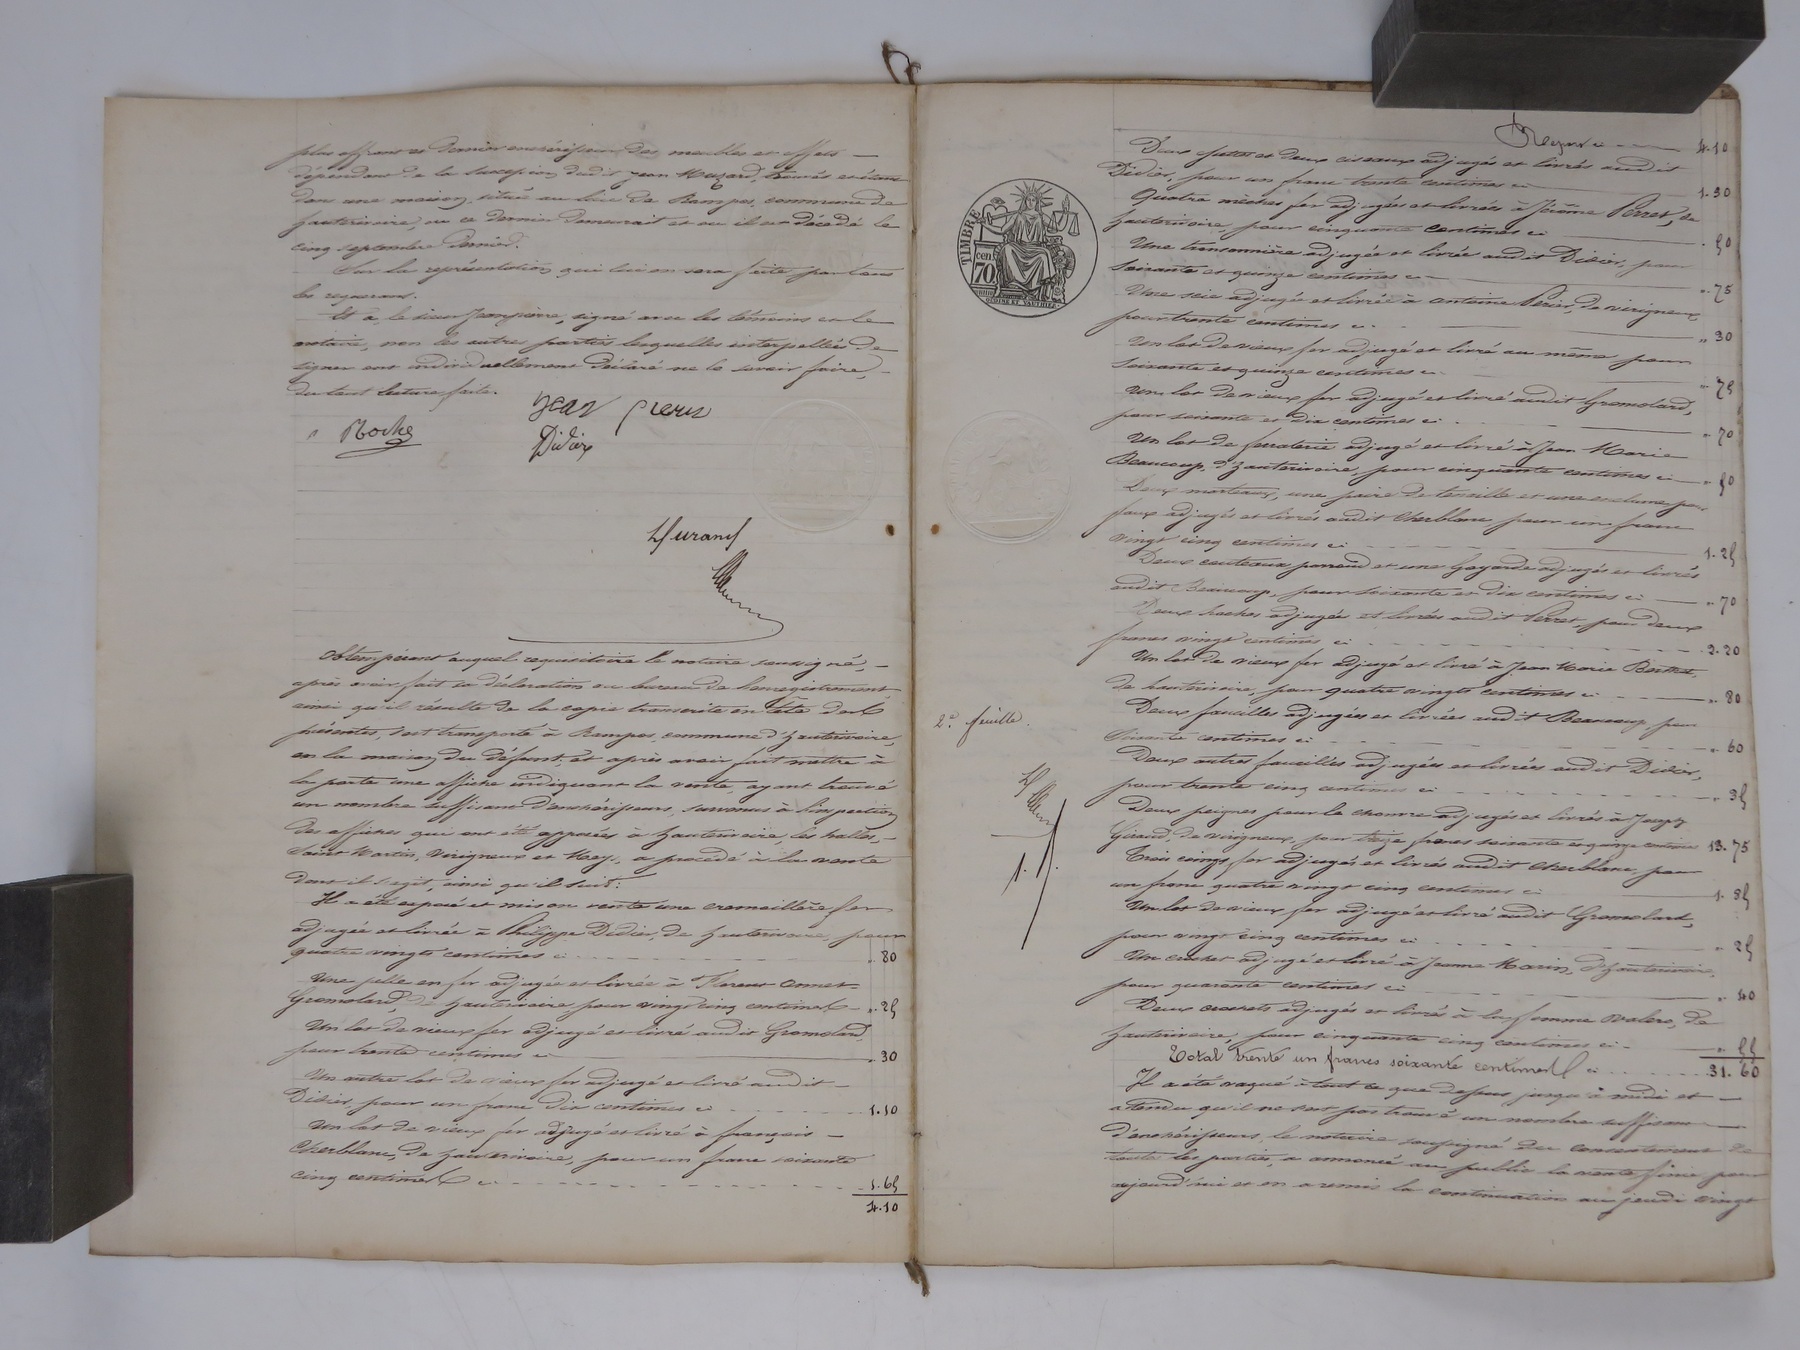 plus offrant et dernier enchérisseur des meubles et effets
dépendant de la succession dudit Jean Muzard, trouvés et étant
dans une maison, située au lieu de Rampos, commune de
hauterivoire, ou ce dernier demeurait et ou il est décédé le
cinq septembre dernier.
Sur la représentation qui lui en sera faite par tous
les requerans.
Et a, le sieur Jean pierre, signé avec les témoins et le
notaire, non les autres parties lesquelles interpellées de
signer ont individuellement déclaré ne le savoir faire,
du tout lecture faite.
Jean pierre
Roche
Didier
Durand
Obtempérant auquel requisitoire le notaire soussigné,
après avoir fait sa déclaration au bureau de l'enregistrement
ainsi qu'il résulte de la copie transcrite en tête des
présentes, s'est transporté à Rampos, commune d'hauterivoire,
en la maison du défunt, et après avoir fait mettre à
la porte une affiche indiquant la vente, ayant trouvé
un nombre suffisant d'enchérisseurs, survenus à l'inspection
des affiches qui ont été apposées à hauterivoire, les halles,
Saint Martin, Virigneux et Meys, a procédé à la vente
dont il s'agit, ainsi qu'il suit:
Il a été exposé et mis en vente une cremaillère fer
adjugée et livrée à Philippe Didier, de hauterivoire, pour
quatre vingts centimes ci ". 80
Une pelle en fer adjugée et livrée à
Gromolard, de hauterivoire pour vingt cinq centimes ". 25
Un lot de vieux fer adjugé et livré audit Gromolard,
pour trente centimes ci ". 30
Un autre lot de vieux fer adjugé et livré audit
Didier, pour un franc dix centimes ci 1.10
Un lot de vieux fer adjugé et livré à françois
Cherblanc, de hauterivoire, pour un franc soixante
cinq centimes ci 1.65
4.10
Report ci 4.10
Deux et deux ciseaux adjugés et livrés audit
Didier, pour un franc trente centimes ci 1.30
Quatre mèches fer adjugées et livrées à Jérôme Perret, de
hauterivoire, pour cinquante centimes ci ". 50
Une adjugée et livrée audit Didier, pour
soixante et quinze centimes ci ". 75
Une scie adjugée et livrée à antoine Perier, de virigneux
pour trente centimes ci ". 30
Un lot de vieux fer adjugé et livré au même pour
soixante et quinze centimes ci ". 75
Un lot de vieux fer adjugé et livré audit Gromolard,
pour soixante et dix centimes ci ". 70
Un lot de ferraterie adjugé et livré à Jean Marie
Beaucoup, d'hauterivoire, pour cinquante centimes ci ". 50
Deux marteaux, une paire de tenaille et une enclume pour
faux adjugés et livrés audit Cherblanc, pour un franc
vingt cinq centimes ci 1.25
Deux couteaux et une adjugés et livrés
audit Beaucoup, pour soixante et dix centimes ci ". 70
Deux haches adjugées et livrées audit Perret, pour deux
francs vingt centimes ci 2.20
Un lot de vieux fer adjugé et livré à Jean Marie
de hauterivoire, pour quatre vingts centimes ci ". 80
Deux faucilles adjugées et livrées audit Beaucoup, pour
soixante centimes ci ". 60
Deux autres faucilles adjugées et livrées audit Didier,
pour trente cinq centimes ci ". 35
Deux peignes pour le chanvre adjugés et livrés à
Giraud, de virigneux, pour treize francs soixante et quinze centimes 13.75
Trois coings fer adjugés et livrés audit Cherblanc, pour
un franc quatre vingt cinq centimes ci 1.85
Un lot de vieux fer adjugé et livré audit Gromolard,
pour vingt cinq centimes ci ". 25
Un crochet adjugé et livré à Jeanne Marin, d'hauterivoire,
pour quarante centimes ci ". 40
Deux crochets adjugés et livrés à la femme, de
hauterivoire, pour cinquante cinq centimes ci ". 55
Total trente un francs soixante centimes ci 31.60
Il a été vaqué à tout ce que dessus jusqu'à midi et
attendu qu'il ne s'est pas trouvé un nombre suffisant
d'enchérisseurs, le notaire soussigné du consentement de
toute les parties, a annoncé au public la vente finie pour
aujourd'hui et en a remis la continuation au jeudi vingt
2e. feuille.
TIMBRE
70
cen